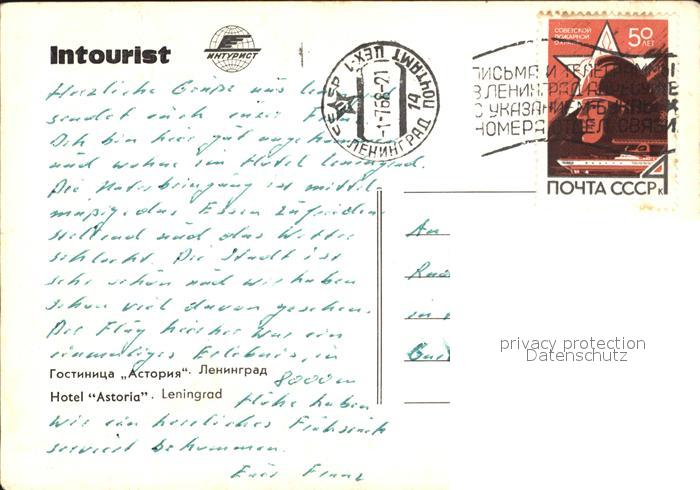 Intourist
ИНТУРИСТ
Herzliche Grüße aus Leningrad
sendet euch euer Franz
Ich bin hier gut angekommen
und wohne im Hotel Leningrad.
Die Unterbringung ist mittel
mäßig das Essen zufrieden
stellend und das Wetter
schlecht. Die Stadt ist
sehr schön und wir haben
schon viel davon gesehen.
Der Flug hierher war ein
einmaliges Erlebnis, in
Гостиница „Астория“. Ленинград
8000 m
Hotel “Astoria”. Leningrad
Höhe haben
wir ein herrliches Frühstück
serviert bekommen.
Euer Franz
СССР
ПОЧТАМТ ЦЕХ-1
-1-7.68-21
ЛЕНИНГРАД
14
ПИСЬМА И ТЕЛЕГРАММЫ
В ЛЕНИНГРАД АДРЕСУЙТЕ
С УКАЗАНИЕМ
НОМЕРА ОТДЕЛ. СВЯЗИ
СОВЕТСКОЙ
ПОЖАРНОЙ
ОХРАНЕ
50
ЛЕТ
4 К
ПОЧТА СССР
An
in
privacy protection
Datenschutz